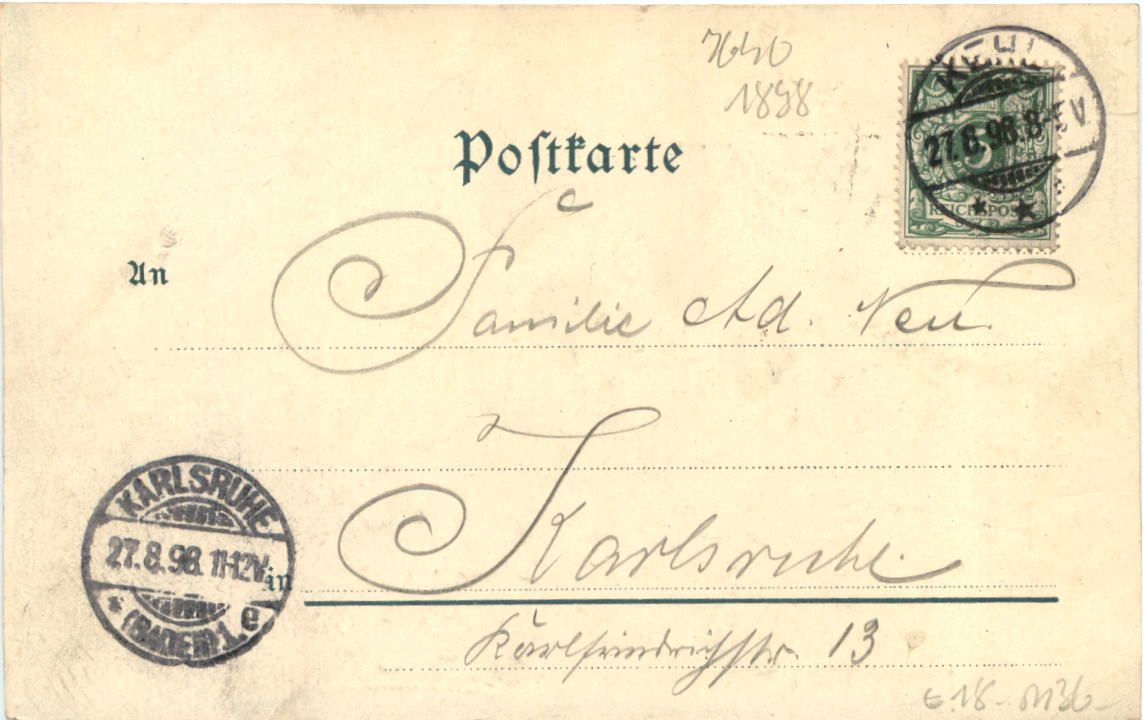 1898
KEHL
27.8.98.8-9V
5
REICHSPOST
Postkarte
An
Familie Ad. Neu
KARLSRUHE
27.8.98. 11-12V.
(BADEN) 1. e
in
Karlsruhe.
Karlfriedrichstr. 13